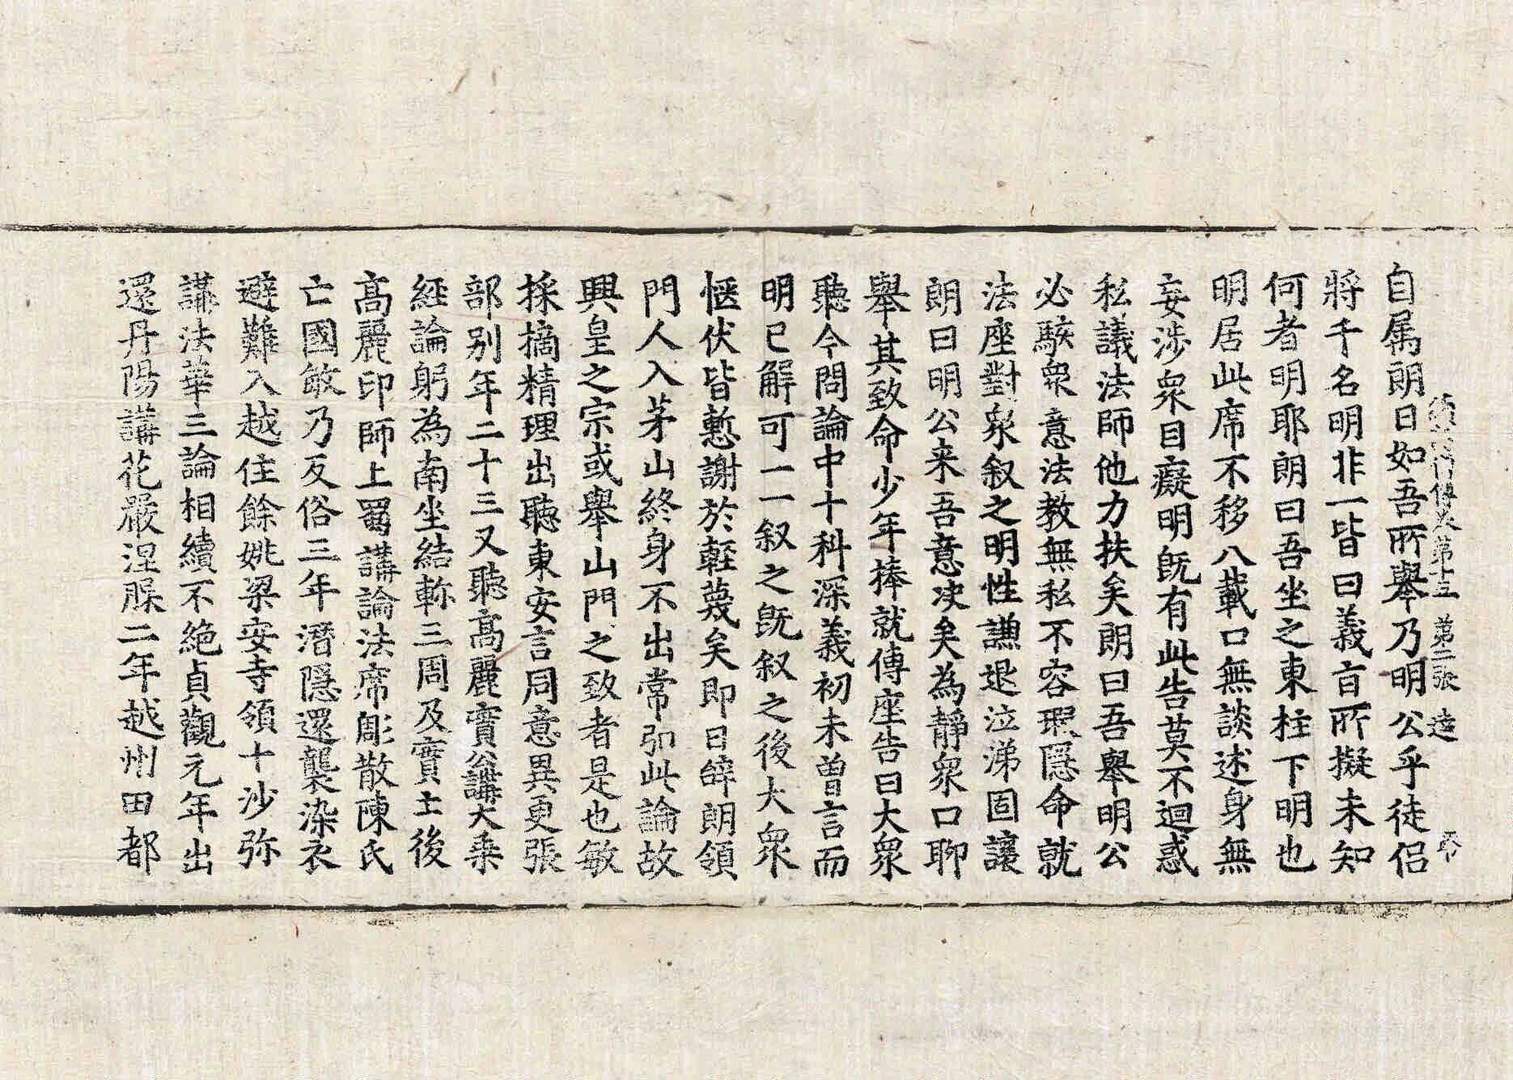 傳卷第十三 第二張 造
自属朗曰如吾所舉乃明公乎徒侶
將千名明非一皆曰義旨所擬未知
何者明耶朗曰吾坐之東柱下明也
明居此席不移八載口無談述身無
妄涉衆目癡明旣有此告莫不迴惑
私議法師他力扶矣朗曰吾舉明公
必駭衆意法教無私不容瑕隱命就
法座對衆叙之明性謙退泣涕固讓
朗曰明公来吾意决矣為靜衆口聊
舉其致命少年捧就傳座告曰大衆
聽今問論中十科深義初未曾言而
明已解可一一叙之旣叙之後大衆
惬伏皆慙謝於輕蔑矣即日辭朗領
門人入茅山終身不出常弘此論故
興皇之宗或舉山門之致者是也敏
採摘精理出聽東安言同意異更張
部别年二十三又聽高麗實公講大乘
經論躬為南坐結軫三周及實士後
高麗印師上蜀講論法席彫散陳氏
亡國敏乃反俗三年潛隱還襲染衣
避難入越住餘姚梁安寺領十沙弥
講法華三論相續不絶貞觀元年出
還丹陽講花嚴涅脲二年越州田都